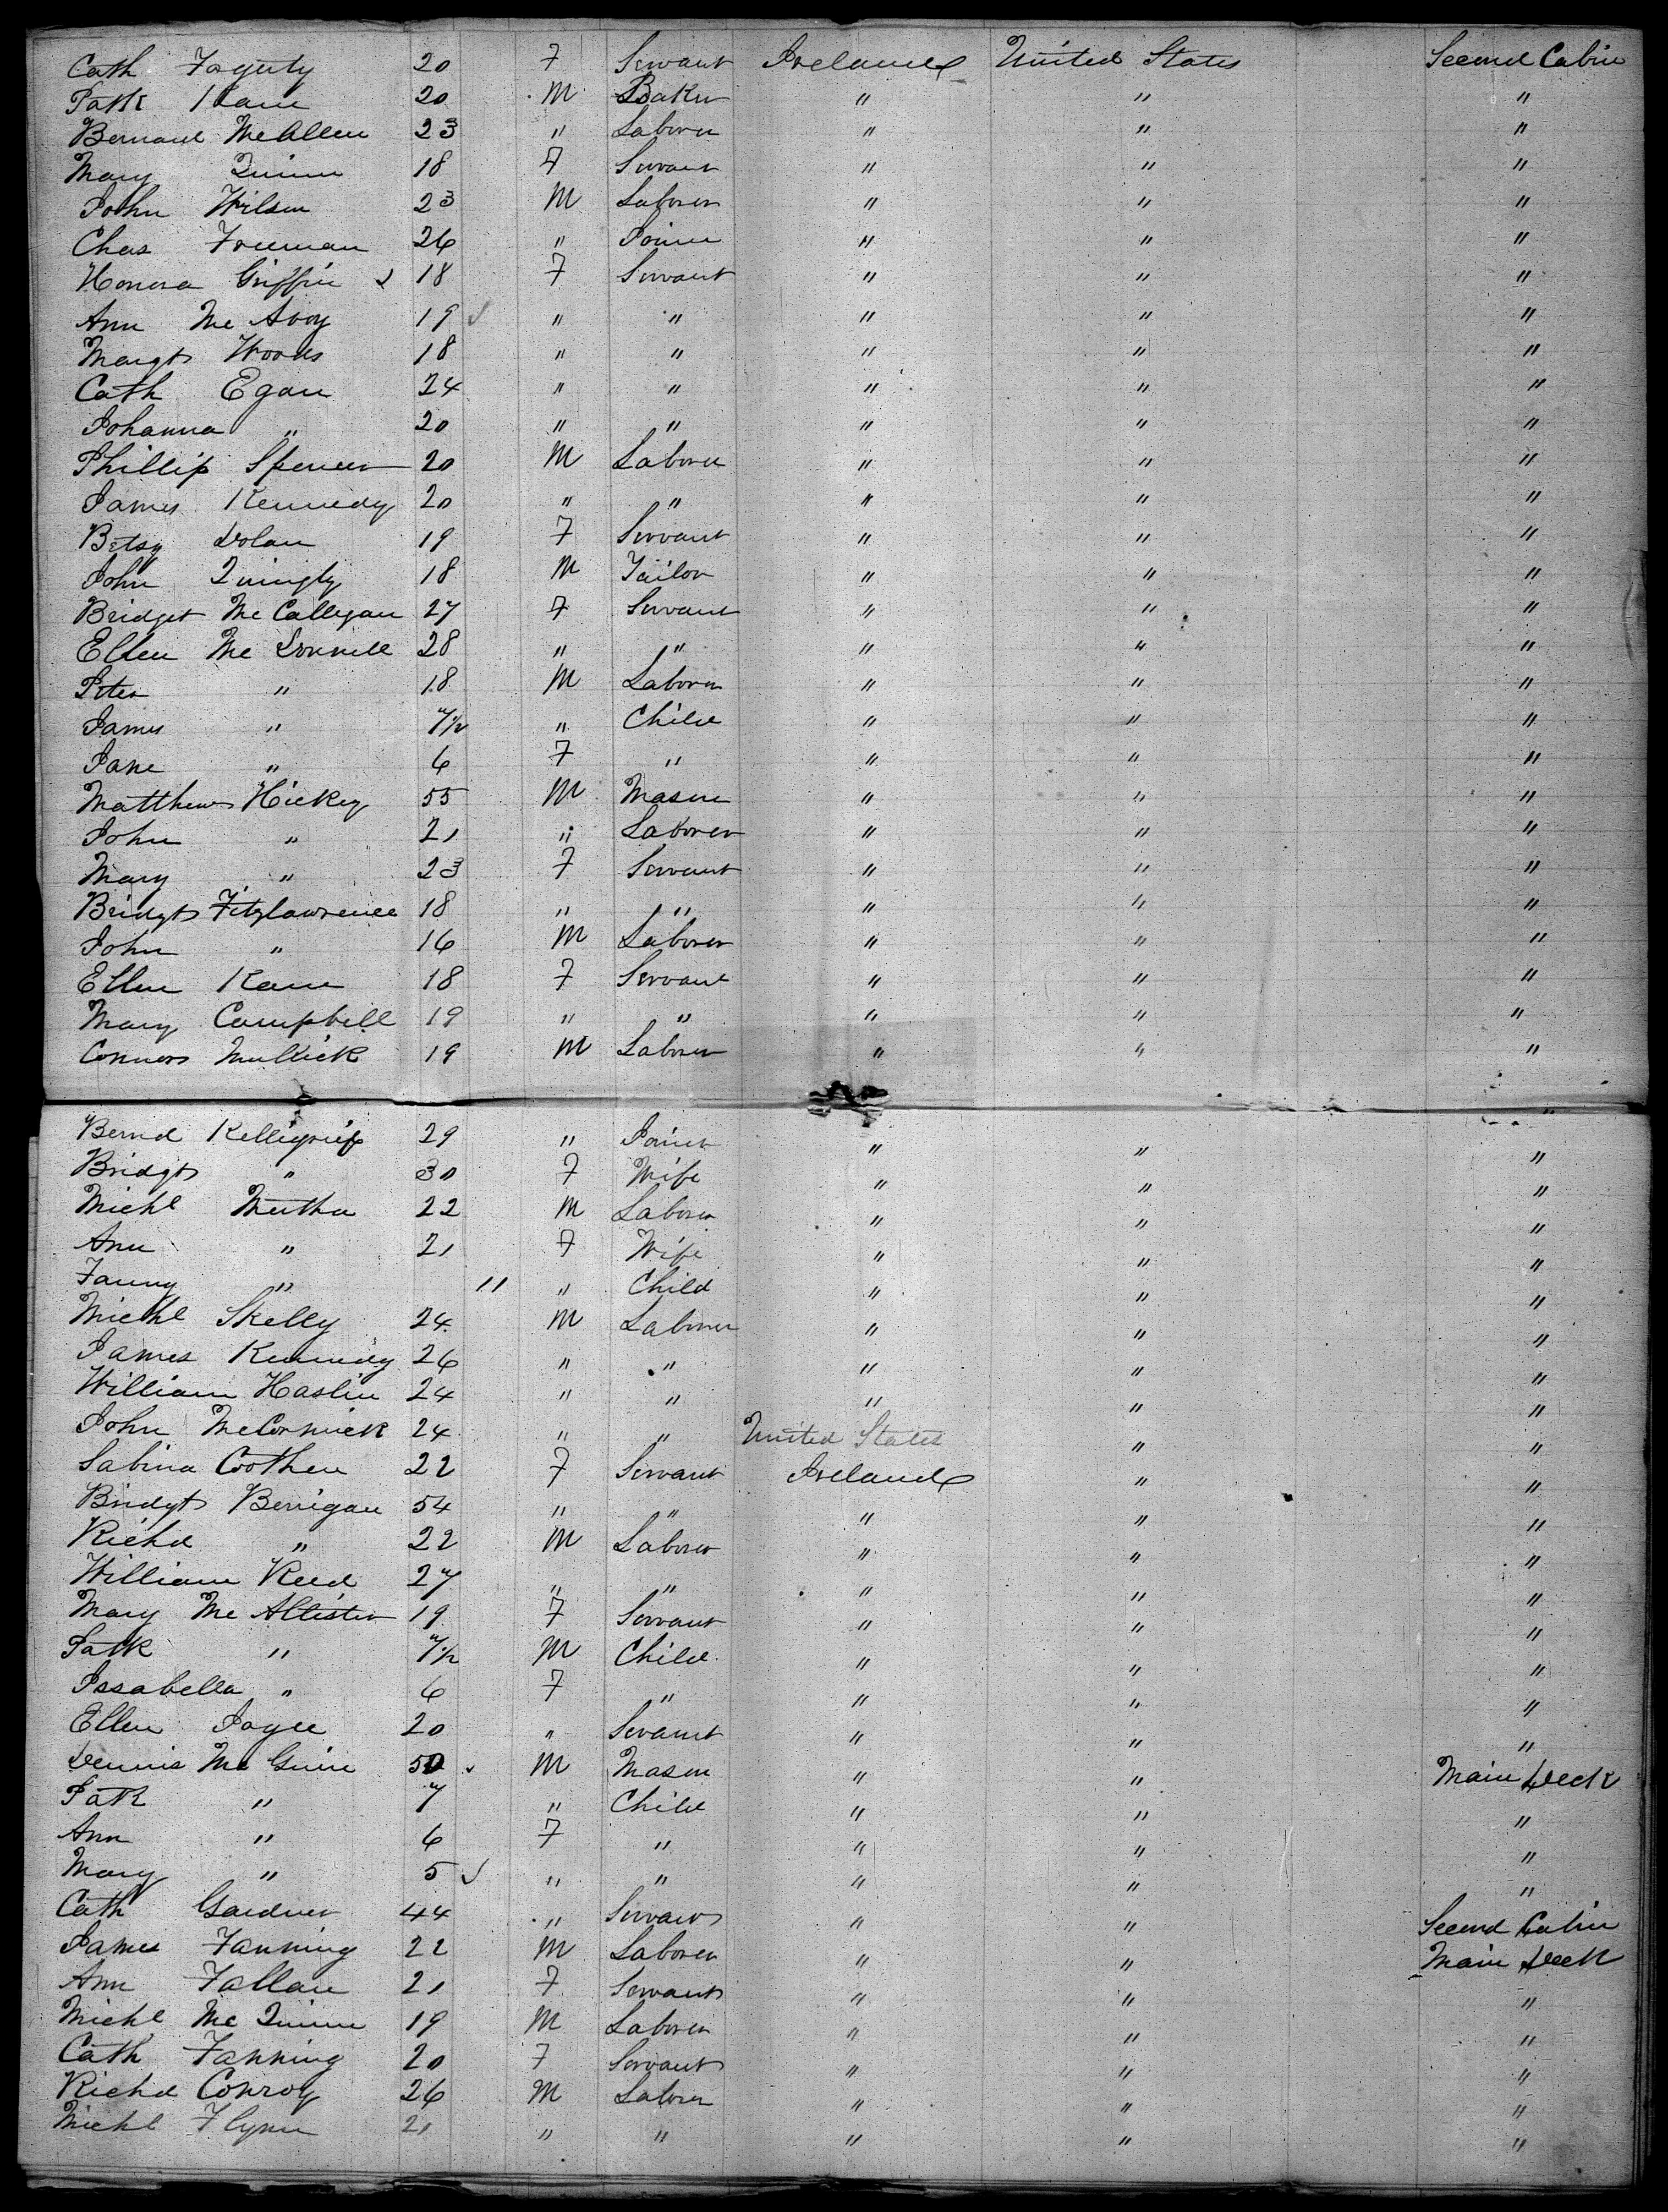 Cath Foguty 20 F Servant Ireland United States Second Cabin
Patk Kane 20 M Baker " " "
Bernard McAllen 23 " Laborer " " "
Mary Quinn 18 F Servant " " "
John Wilson 23 M Laborer " " "
Chas Freeman 26 " Joiner " " "
Honora Griffin 18 F Servant " " "
Ann McAvoy 19 " " " " "
Margt Woods 18 " " " " "
Cath Egan 24 " " " " "
Johanna " 20 " " " " "
Phillip Spencer 20 M Laborer " " "
James Kennedy 20 " " " " "
Betsy Dolan 19 F Servant " " "
John Quingly 18 M Tailor " " "
Bridget McCallegan 27 F Servant " " "
Ellen McDonnell 28 " " " " "
Peter " 18 M Laborer " " "
James " 7 1/2 " Child " " "
Jane " 6 F " " " "
Matthew Hickey 55 M Mason " " "
John " 21 " Laborer " " "
Mary " 23 F Servant " " "
Bridgt Fitzlawrence 18 " " " " "
John " 16 M Laborer " " "
Ellen Kane 18 F Servant " " "
Mary Campbell 19 " " " " "
Connors Mullick 19 M Laborer " " "
Bernd Kelligrief 29 " Joiner " " "
Bridgt " 30 F Wife " " "
Michl Meutha 22 M Laborer " " "
Ann " 21 F Wife " " "
Fanny " 11 " Child " " "
Michl Skelly 24 M Laborer " " "
James Kennedy 26 " " " " "
William Haslin 24 " " " " "
John McCormick 24 " " United States " "
Sabina Coothen 22 F Servant Ireland " "
Bridgt Berrigan 54 " " " " "
Richd " 22 M Laborer " " "
William Reed 27 " " " " "
Mary McAllister 19 F Servant " " "
Patk " 7 1/2 M Child " " "
Issabella " 6 F " " " "
Ellen Joyce 20 " Servant " " "
Dennis McGuin 50 M Mason " " Main Deck
Patk " 7 " Child " " "
Ann " 6 F " " " "
Mary " 5 " " " " "
Cath Gardner 44 " Servant " " Second Cabin
James Fanning 22 M Laborer " " Main Deck
Ann Fallan 21 F Servant " " "
Michl McQuinn 19 M Laborer " " "
Cath Fanning 20 F Servant " " "
Richd Conroy 26 M Laborer " " "
Michl Flynn 21 " " " " "